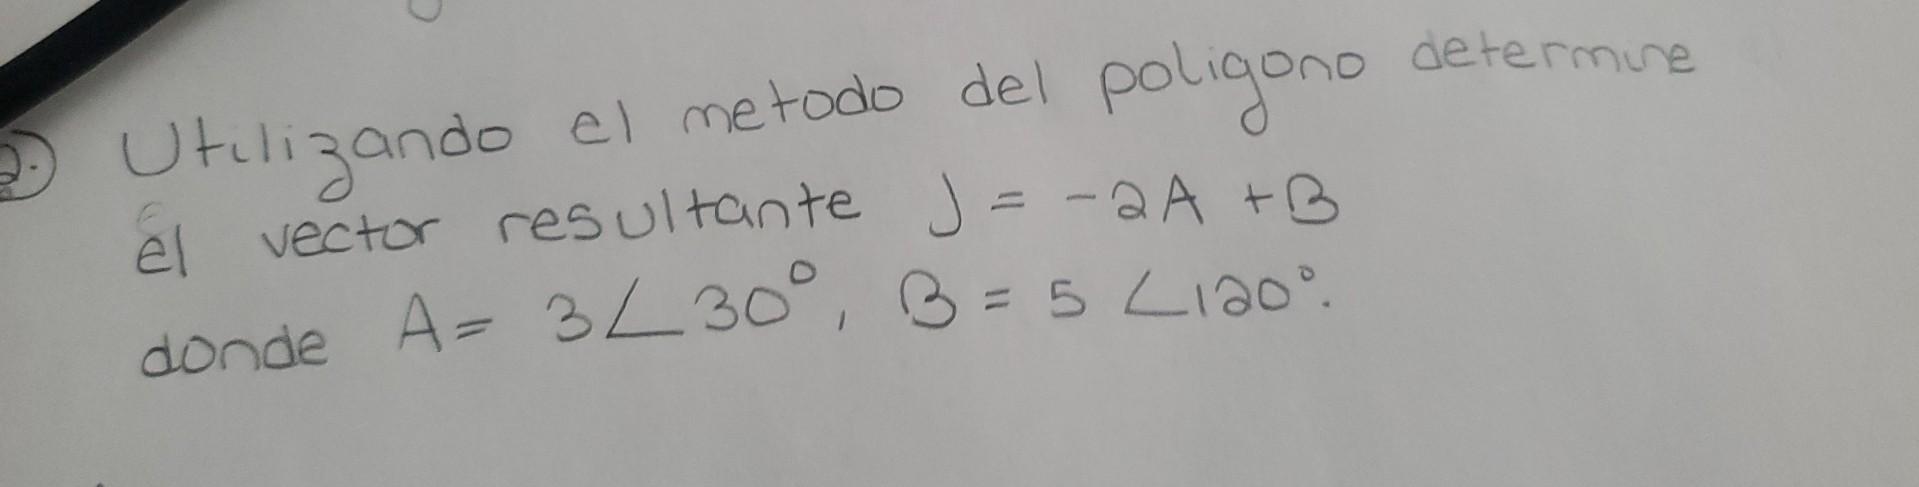 2. Utilizando el metodo del poligono determine
el vector resultante J = -2A + B
donde A = 3∠30°, B = 5 ∠120°.